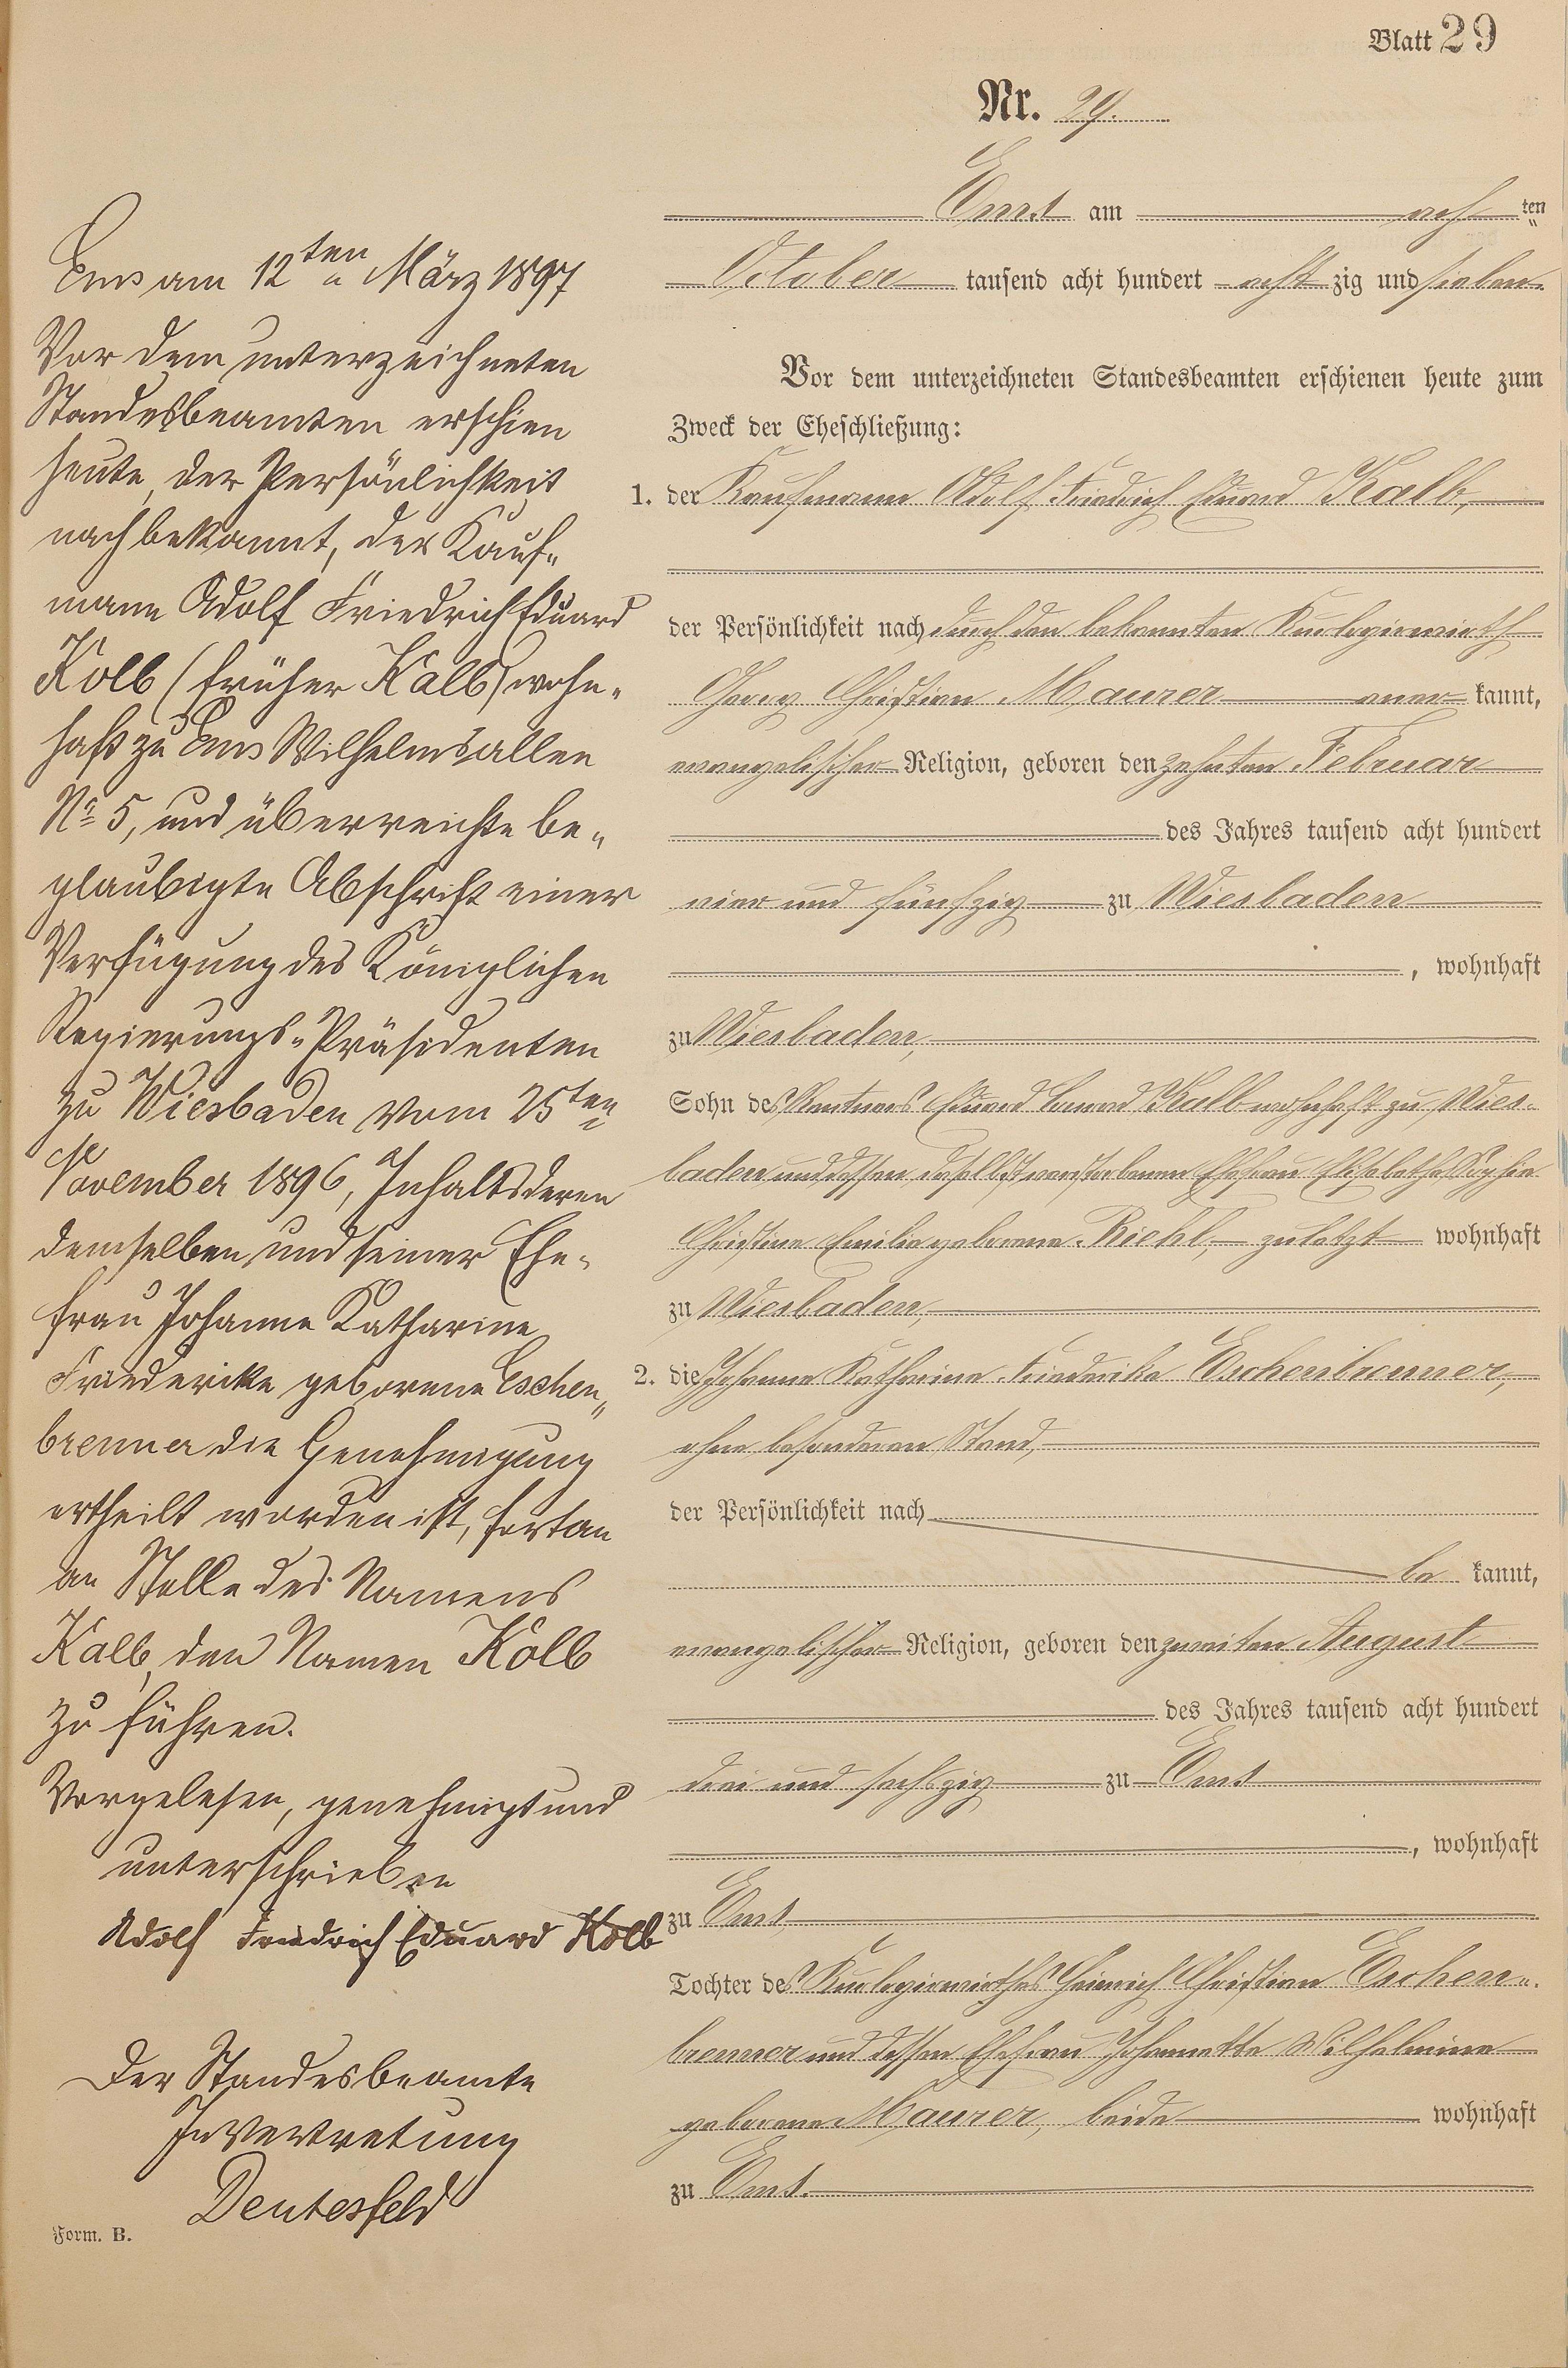 Blatt 29
Nr. 29.
Ems am acht ten
October tausend acht hundert acht zig und sieben.
Vor dem unterzeichneten Standesbeamten erschienen heute zum
Zweck der Eheschließung:
1. der Kaufmann Adolf Friedrich Eduard Kalb,
der Persönlichkeit nach durch den bekannten Kurlogierwirth
Georg Christian Maurer aner kannt,
evangelischer Religion, geboren den zehnten Februar
des Jahres tausend acht hundert
vier und fünfzig zu Wiesbaden
, wohnhaft
zu Wiesbaden,
Sohn des Rentners Eduard Kalb wohnhaft zu Wies-
baden und dessen daselbst verstorbenen Ehefrau Elisabetha Sophie
Christine Emilie geborene Riehl, zuletzt wohnhaft
zu Wiesbaden,
2. die Johanne Katharine Friederike Eschenbrenner,
ohne besonderen Stand,
der Persönlichkeit nach
be kannt,
evangelischer Religion, geboren den zweiten August
des Jahres tausend acht hundert
drei und sechszig zu Ems
, wohnhaft
zu Ems,
Tochter des Kurlogierwirthes Heinrich Christian Eschen-
brenner und dessen Ehefrau Johannette Wilhelmine
geborene Maurer, beide wohnhaft
zu Ems.
Ems am 12ten März 1897
Vor dem unterzeichneten
Standesbeamten erschien
heute, der Persönlichkeit
nach bekannt, der Kauf-
mann Adolf Friedrich Eduard
Kolb (früher Kalb) wohn-
haft zu Ems Wilhelmsallee
No 5, und überreichte be-
glaubigte Abschrift einer
Verfügung des Königlichen
Regierungs-Präsidenten
zu Wiesbaden vom 25ten
November 1896, Inhalts deren
demselben und seiner Ehe-
frau Johanne Katharine
Friederike geborene Eschen-
brenner die Genehmigung
ertheilt worden ist, fortan
an Stelle des Namens
Kalb, den Namen Kolb
zu führen.
Vorgelesen, genehmigt und
unterschrieben
Adolf Friedrich Eduard Kolb
Der Standesbeamte
In Vertretung
Deutesfeld
Form. B.